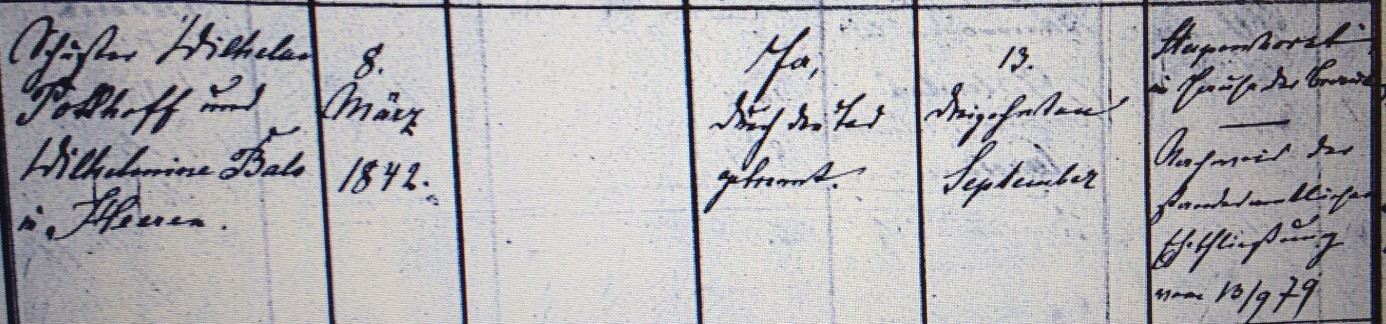 Schuster Wilhelm
Potthoff und
Wilhelmine Bals
in Heeren.
8.
März
1842.
Ja,
durch den Tod
getrennt.
13.
dreizehnten
September
im Hause der Braut
Nachweis der
standesamtlichen
Eheschließung
vom 13/9 79